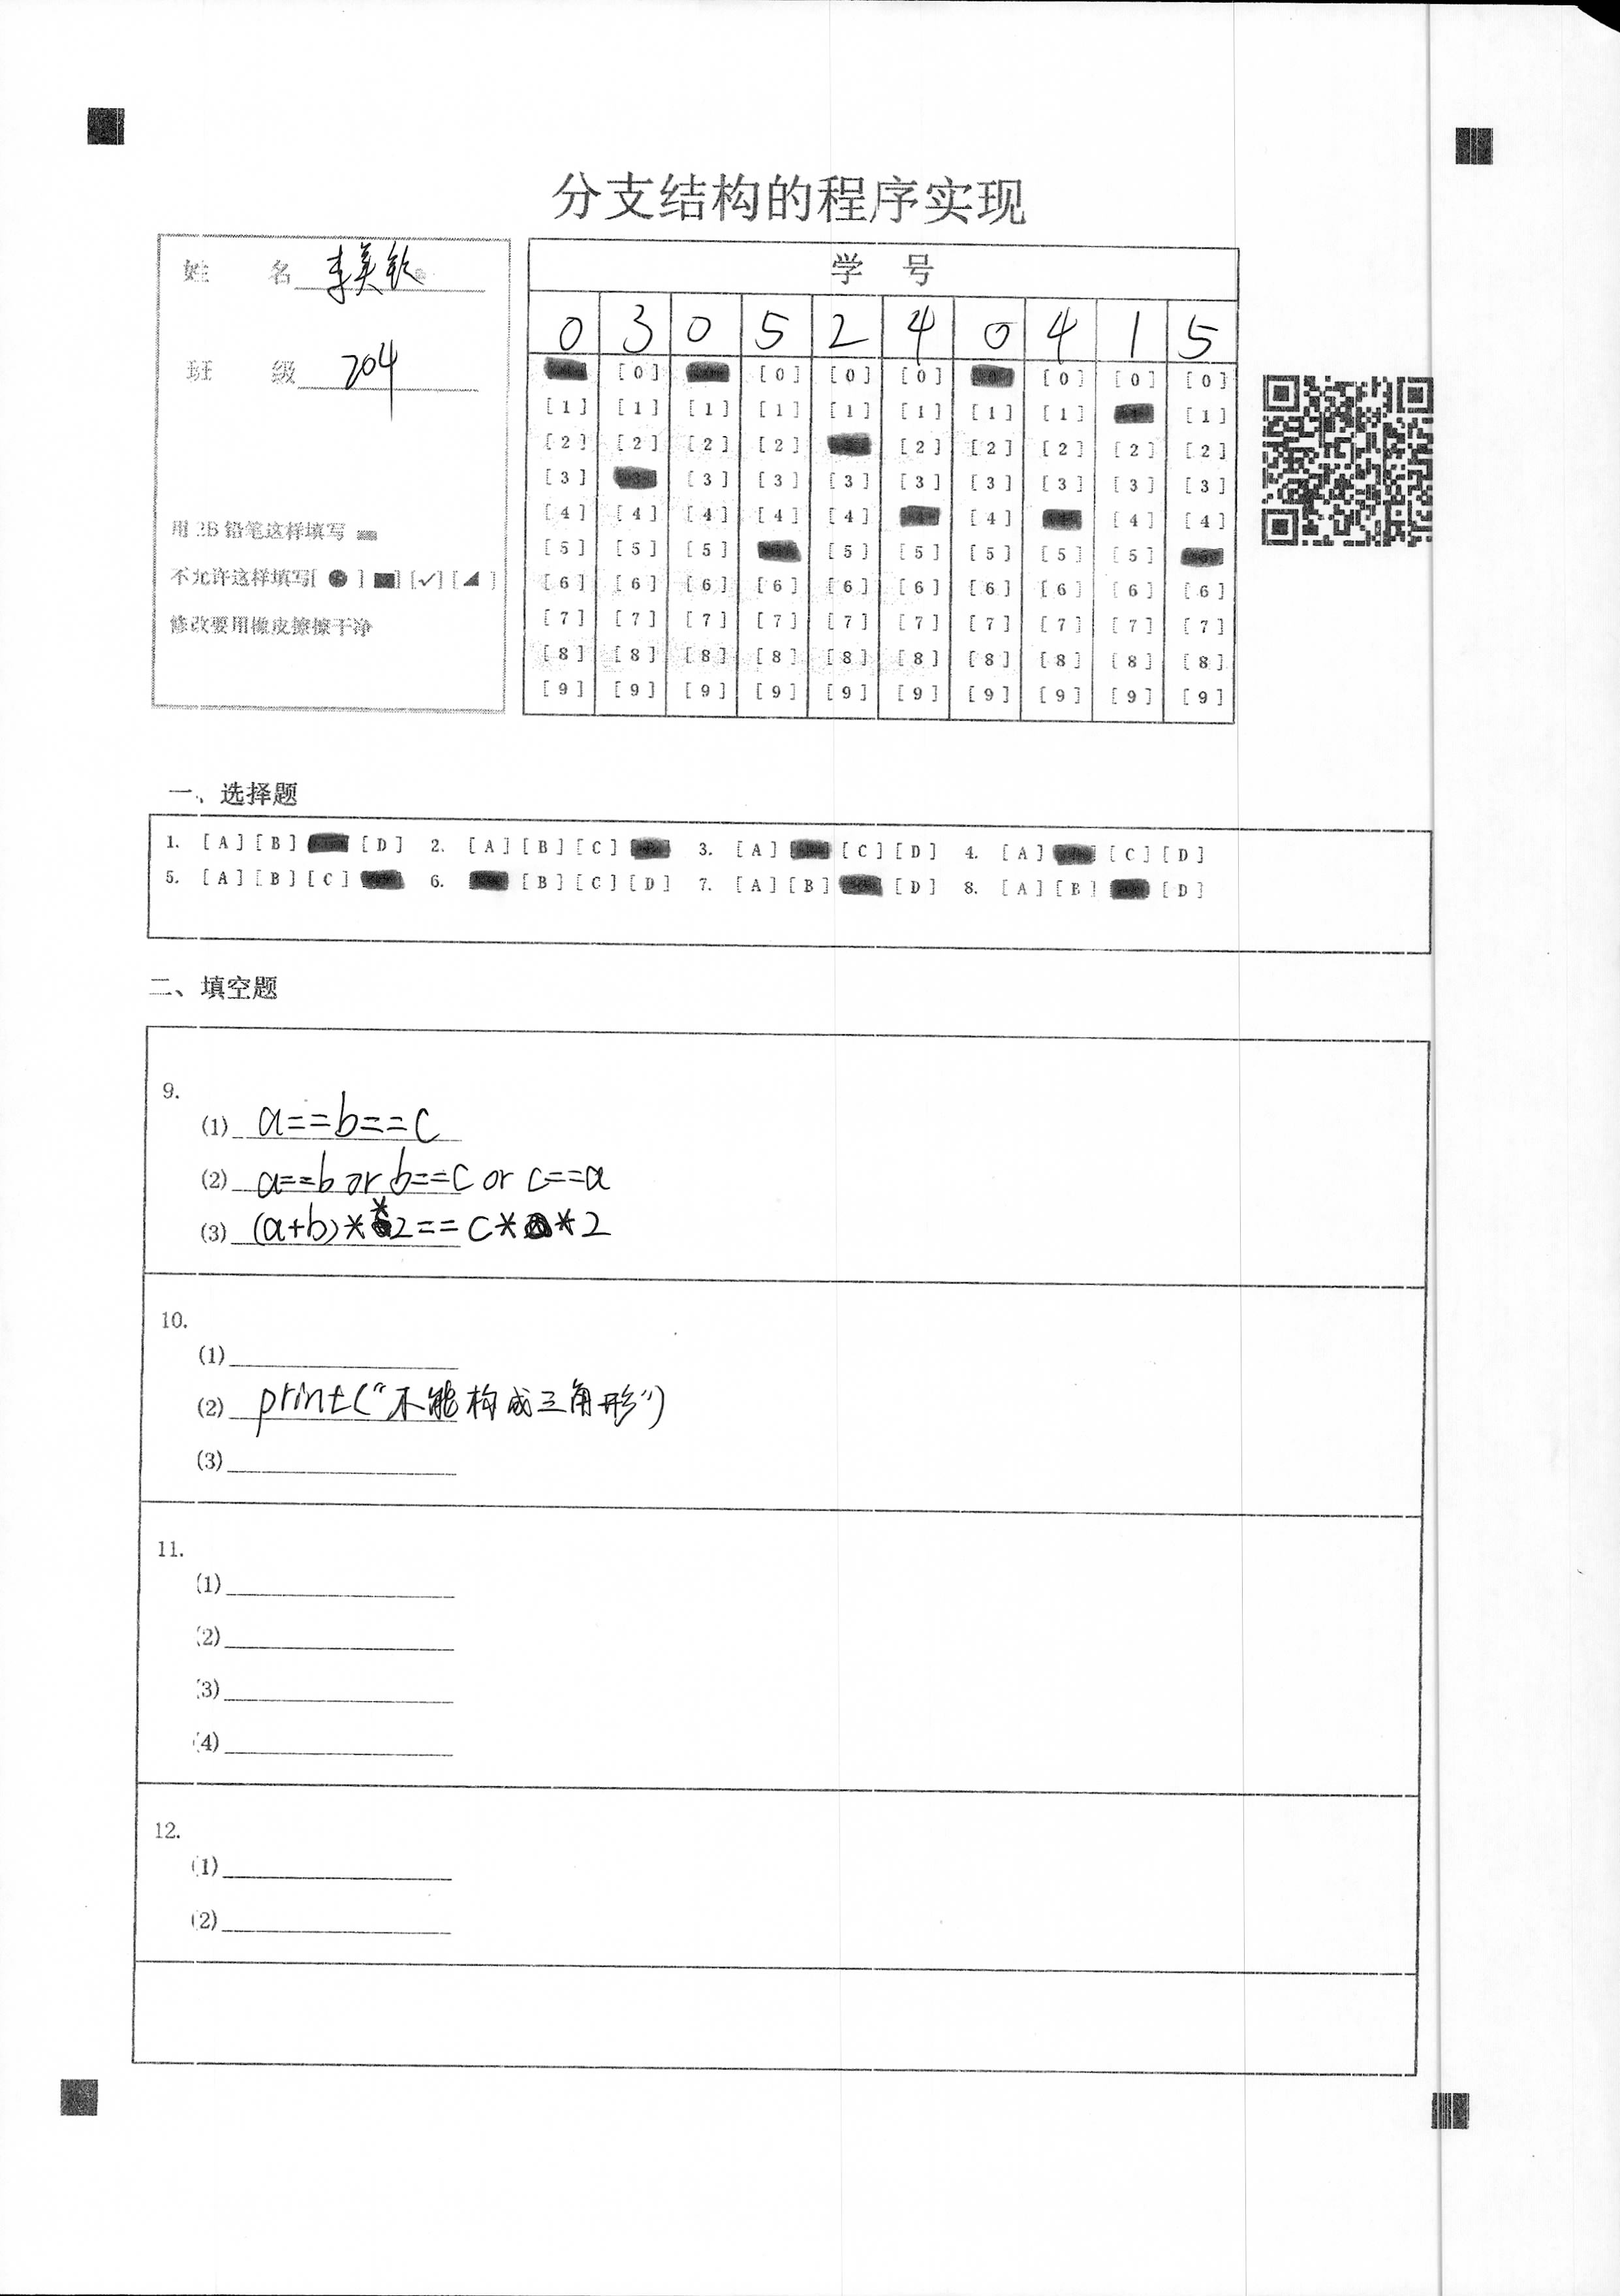 分支结构的程序实现
姓 名 李美钦
班 级 204
用 2B 铅笔这样填写
不允许这样填写[ ● ] ■] [✓] [◢ ]
修改要用橡皮擦擦干净
学 号
0 3 0 5 2 4 0 4 1 5
[0] [0] [0] [0] [0] [0] [0]
[1] [1] [1] [1] [1] [1] [1] [1] [1]
[2] [2] [2] [2] [2] [2] [2] [2] [2]
[3] [3] [3] [3] [3] [3] [3] [3] [3]
[4] [4] [4] [4] [4] [4] [4] [4]
[5] [5] [5] [5] [5] [5] [5] [5]
[6] [6] [6] [6] [6] [6] [6] [6] [6] [6]
[7] [7] [7] [7] [7] [7] [7] [7] [7] [7]
[8] [8] [8] [8] [8] [8] [8] [8] [8] [8]
[9] [9] [9] [9] [9] [9] [9] [9] [9] [9]
一、选择题
1. [A] [B] [D] 2. [A] [B] [C] 3. [A] [C] [D] 4. [A] [C] [D]
5. [A] [B] [C] 6. [B] [C] [D] 7. [A] [B] [D] 8. [A] [B] [D]
二、填空题
9.
(1) a==b==c
(2) a==b or b==c or c==a
(3) (a+b)**2==c**2
10.
(1)
(2) print("不能构成三角形")
(3)
11.
(1)
(2)
(3)
(4)
12.
(1)
(2)